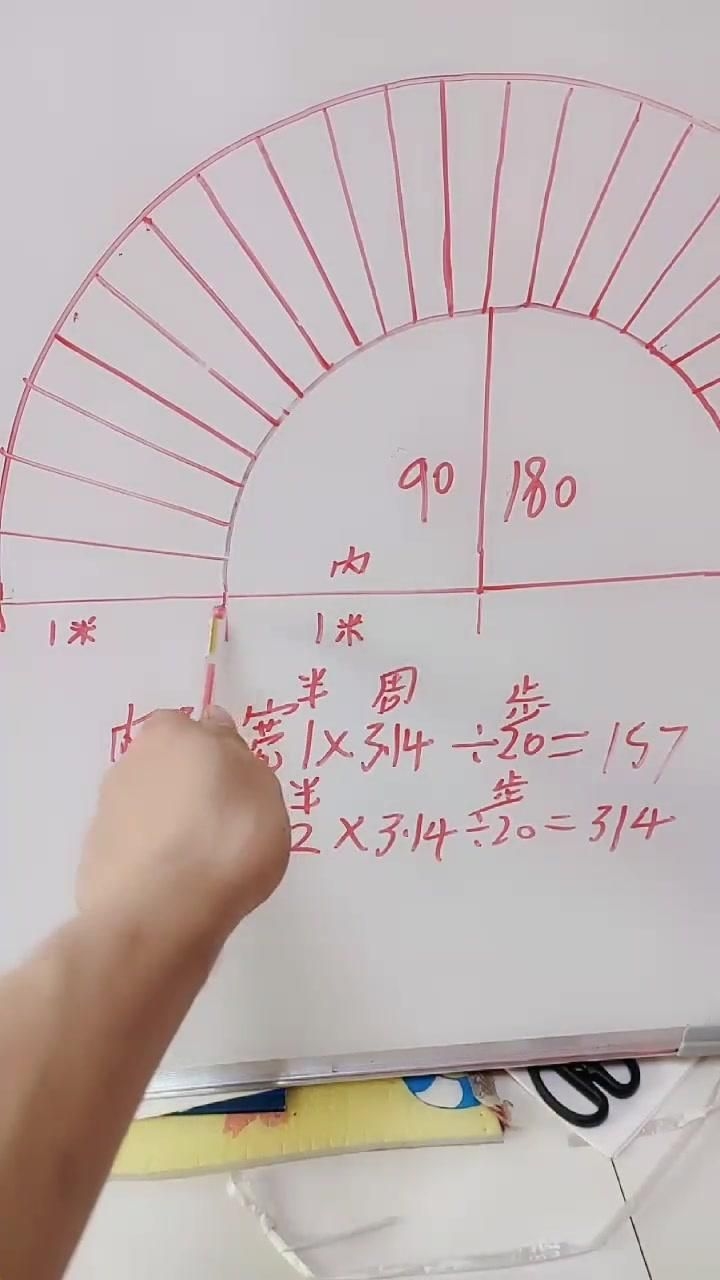 90 180
内
1米 1米
半 周 步
内 宽 1×3.14÷20=157
半 步
2×3.14÷20=314